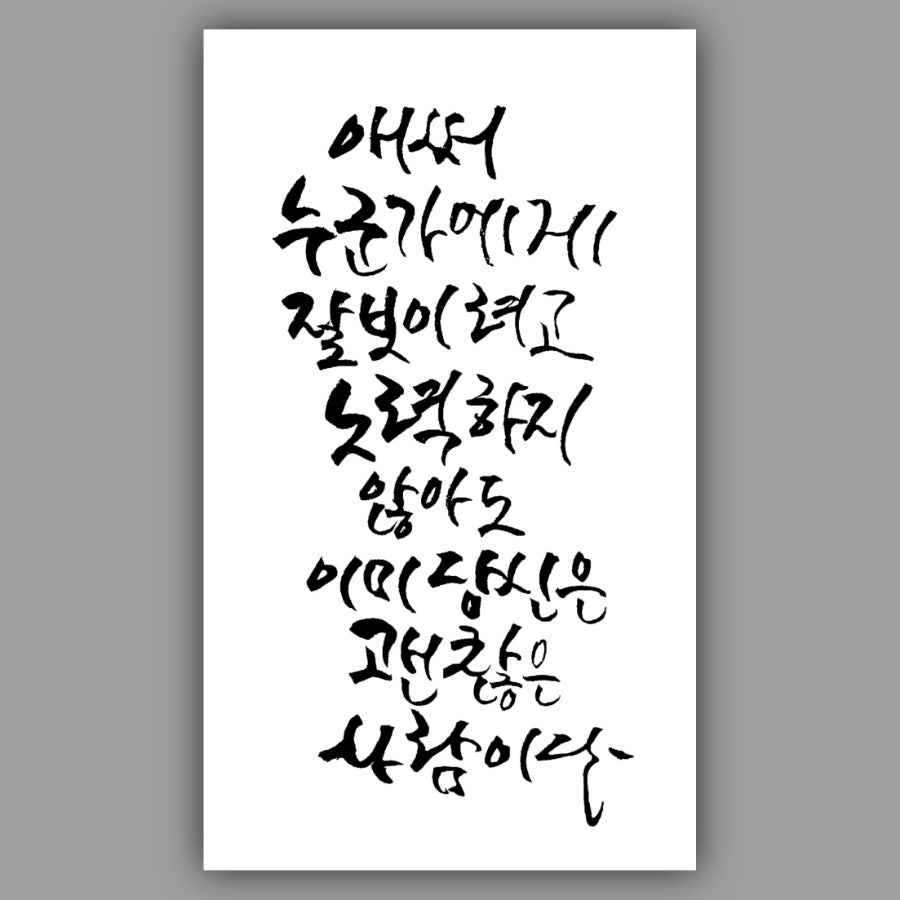 애써
누군가에게
잘빚이려고
노력하지
않아도
이미 당신은
괜찮은
사람이다